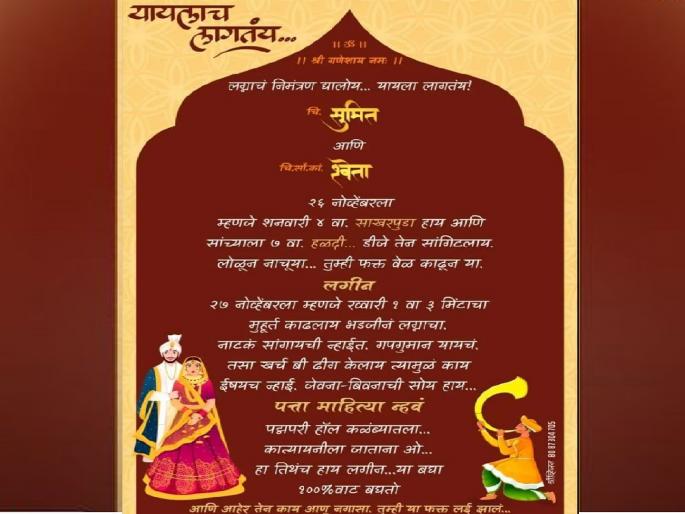 यायलाच
लागतंय...
।। ॐ ।।
।। श्री गणेशाय नमः ।।
लग्नाचं निमंत्रण द्यालोय... यायला लागतंय!
चि. सुमित
आणि
चि.सौ.कां. श्वेता
२६ नोव्हेंबरला
म्हणजे शनवारी ४ वा. साखरपुडा हाय आणि
सांच्याला ७ वा. हळदी... डीजे तेन सांगिटलाय.
लोळून नाचूया... तुम्ही फक्त वेळ काढून या.
लगीन
२७ नोव्हेंबरला म्हणजे रव्वारी १ वा ३ मिंटाचा
मुहूर्त काढलाय भडजीनं लग्नाचा.
नाटकं सांगायची न्हाईत. गपगुमान यायचं.
तसा खर्च बी ढीग केलाय त्यामुळं काय
ईषयच न्हाई. जेवना-बिवनाची सोय हाय...
पत्ता माहित्या न्हवं
पद्मापरी हॉल कळंब्यातला...
कात्यायनीला जाताना ओ...
हा तिथंच हाय लगीन...या बघा
१००%वाट बघतो
आणि आहेर तेन काय आणू नगासा. तुम्ही या फक्त लई झालं...